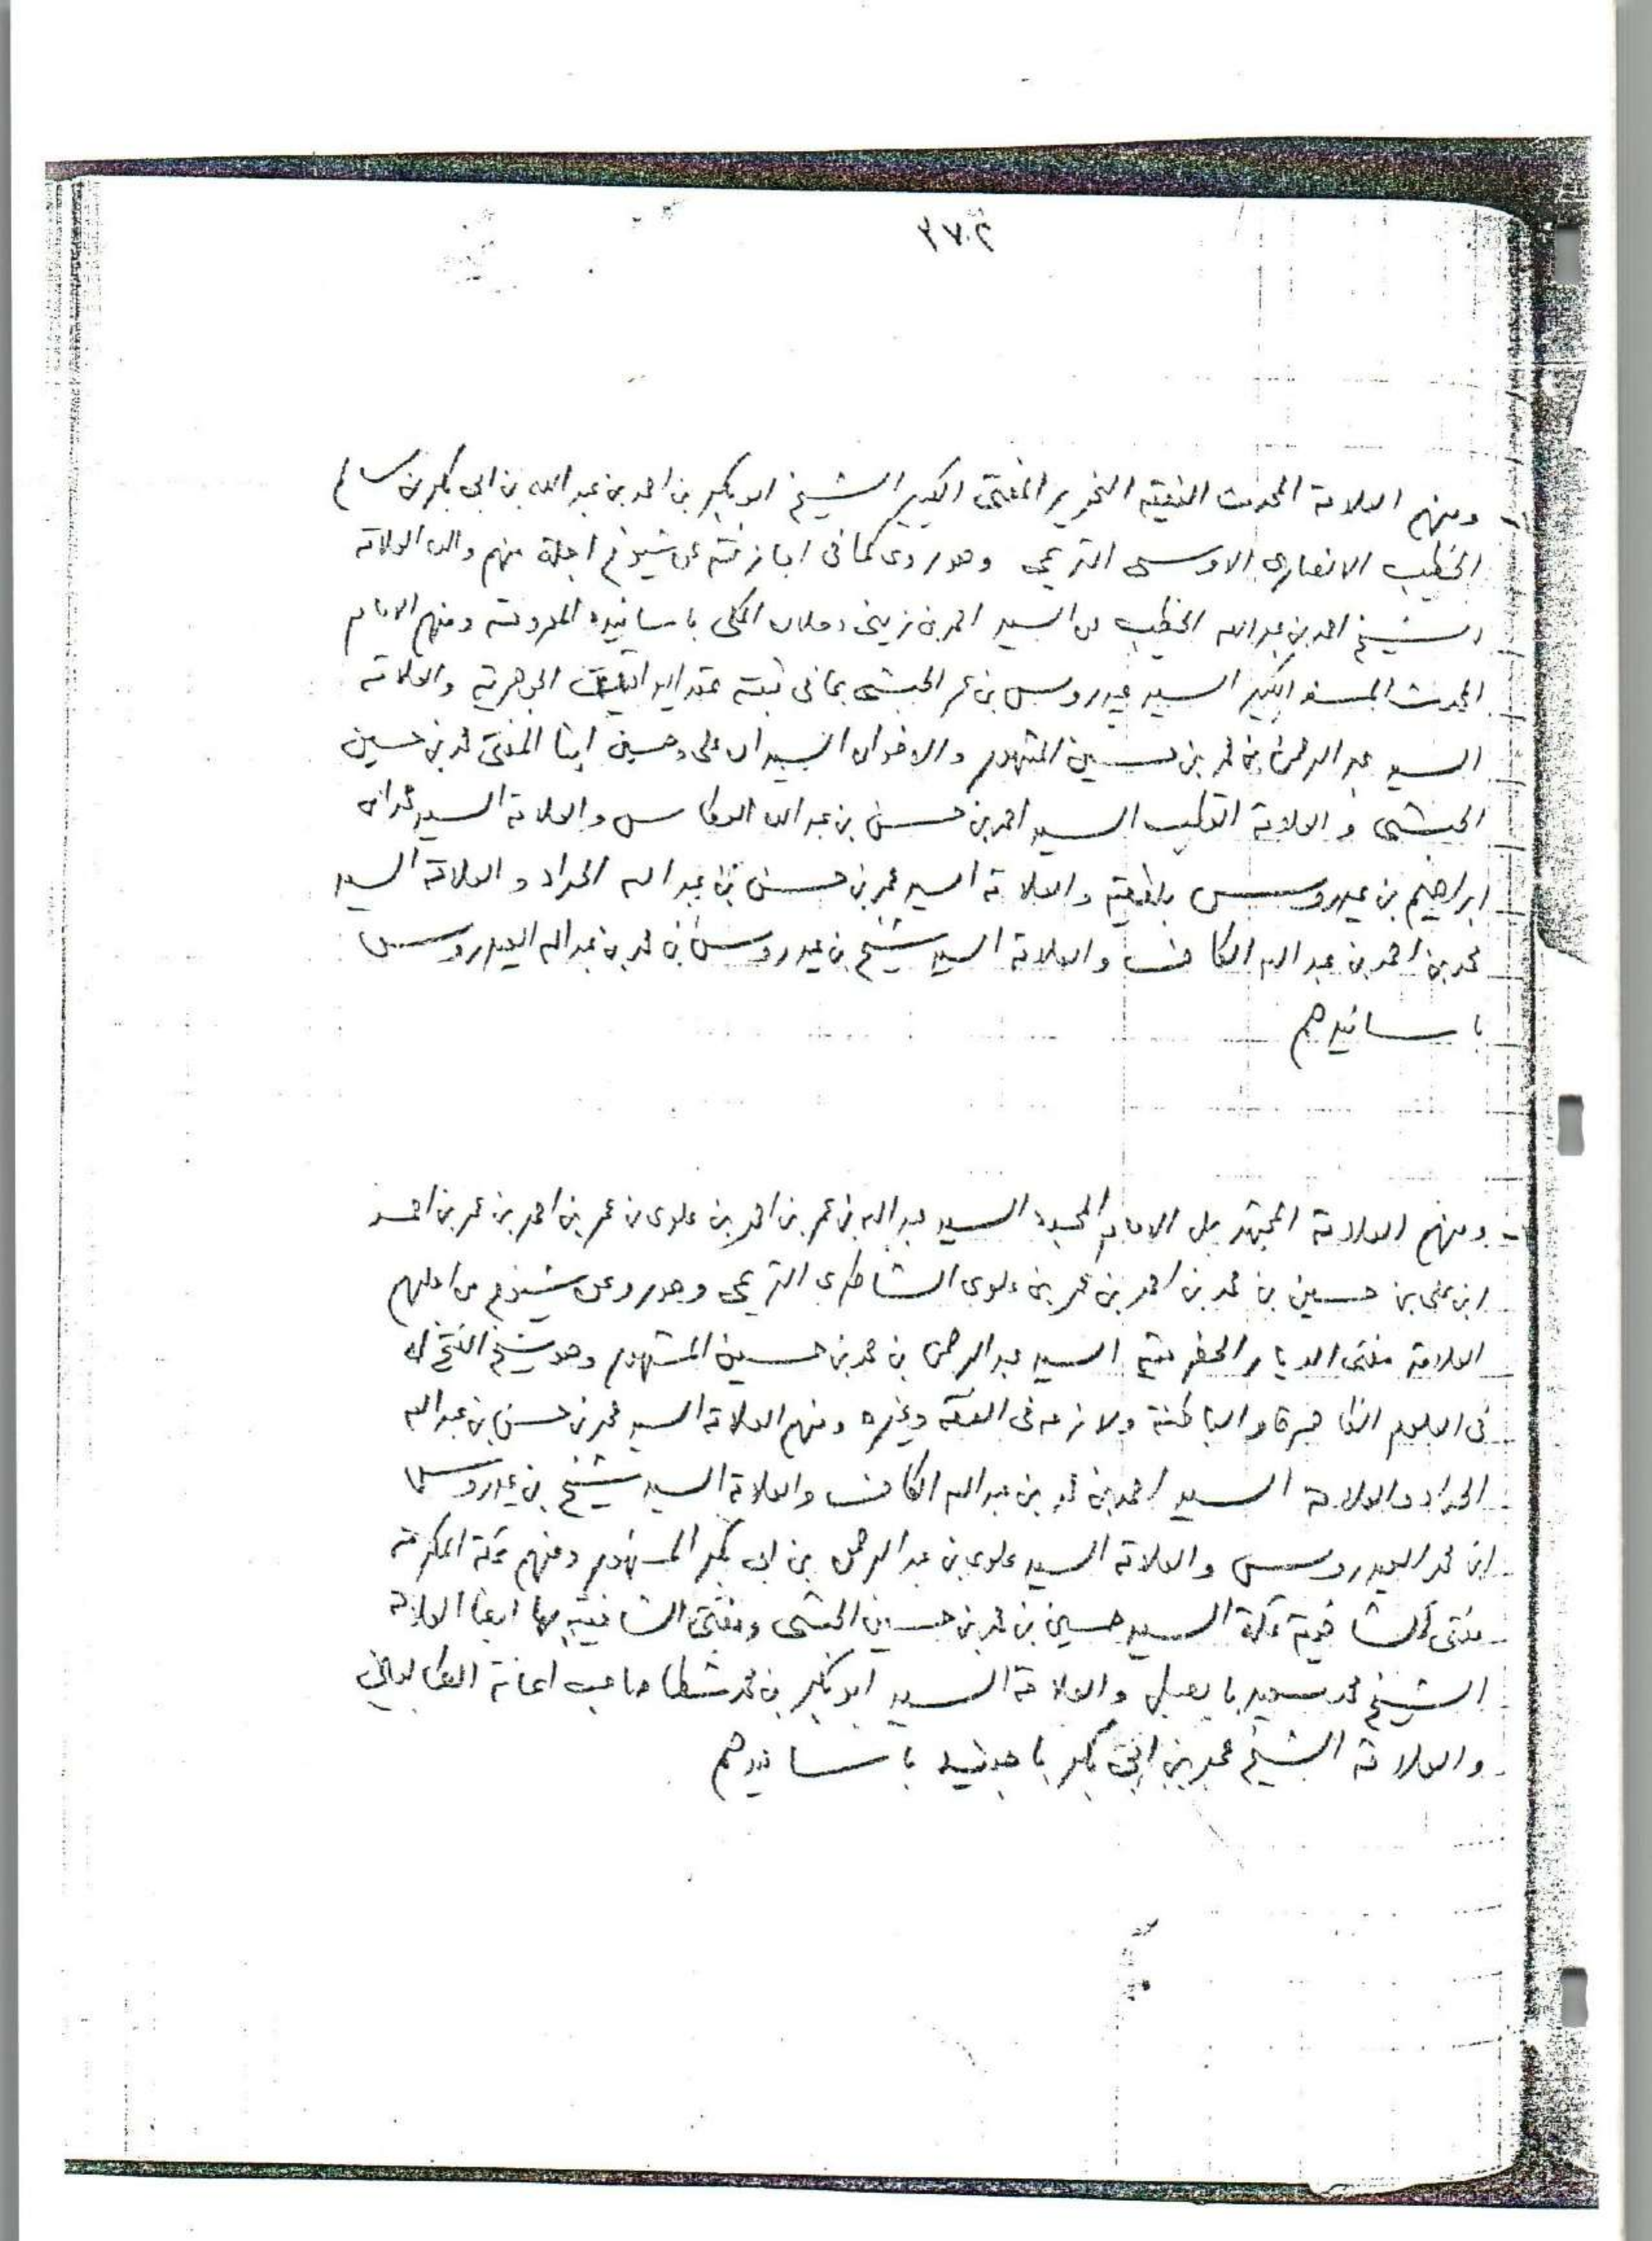 ٣٧٢
- ومنهم العلامة المحدث الفقيه النحرير المفتى الكبير الشيخ ابو بكر بن احمد بن عبد الله بن ابى بكر بن سالم
الخطيب الانصارى الاوسى التريمى وهو روى كما فى اجازته عن شيوخ اجلة منهم والده العلامة
الشيخ احمد بن عبد الله الخطيب عن السيد احمد بن زينى دحلان المكى باسانيده المعروفة ومنهم الامام
المحدث المسند الكبير السيد عيدروس بن عمر الحبشى بما فى ثبته عقد اليواقيت الجوهرية والعلامة
السيد عبد الرحمن بن محمد بن حسين المشهور والاخوان السيدان على وحسين ابنا المفتى محمد بن حسين
الحبشى والعلامة القطب السيد احمد بن حسن بن عبد الله العطاس والعلامة السيد محمد بن
ابراهيم بن عيدروس بلفقيه والعلامة السيد عمر بن حسن بن عبد الله الحداد والعلامة السيد
محمد بن احمد بن عبد الله الكاف والعلامة السيد شيخ بن عيدروس بن محمد بن عبد الله العيدروس
باسانيدهم
- ومنهم العلامة المجتهد بل الامام المجدد السيد عبد الله بن عمر بن احمد بن علوى بن عمر بن احمد بن عمر بن احمد
ابن على بن حسين بن محمد بن احمد بن عمر بن علوى الشاطرى التريمى وهو روى عن شيوخ من اجلهم
العلامة مفتى الديار الحضرمية السيد عبد الرحمن بن محمد بن حسين المشهور وهو شيخ الفتح له
فى العلوم الظاهرة والباطنة ولازمه فى الفقه وغيره ومنهم العلامة السيد عمر بن حسن بن عبد الله
الحداد والعلامة السيد احمد بن محمد بن عبد الله الكاف والعلامة السيد شيخ بن عيدروس
ابن محمد العيدروس والعلامة السيد علوى بن عبد الرحمن بن ابى بكر المشهور ومنهم بمكة المكرمة
مفتى الشافعية بمكة السيد حسين بن محمد بن حسين الحبشى ومفتى الشافعية بها ايضا العلامة
الشيخ محمد سعيد بابصيل والعلامة السيد ابو بكر بن محمد شطا صاحب اعانة الطالبين
والعلامة الشيخ عمر بن ابى بكر باجنيد باسانيدهم